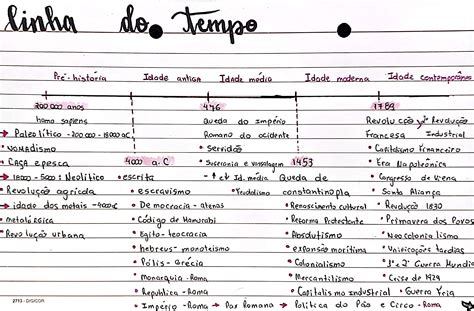 linha do tempo
Pré-história Idade antiga Idade média Idade moderna Idade contemporânea
200.000 anos 476 1789
homo sapiens Queda do Império Revolução 2ª Revolução
→ Paleolítico - 200.000 - 18000 aC Romano do ocidente Francesa Industrial
• nomadismo • Servidão • Capitalismo Financeiro
• Caça e pesca 4000 a.C • Suserania e vassalagem 1453 • Era Napoleônica
→ 18000 - 5000 | Neolítico • escrita Id. média Queda de • Congresso de Viena
Revolução agrícola • escravismo • Feudalismo constantinopla • Santa Aliança
→ idade dos metais - 4000aC • Democracia - atenas • Renascimento cultural • Revolução 1830
• Metalúrgica • Código de Hamurabi • Reforma Protestante • Primavera dos Povos
Revolução urbana • Egito - teocracia • Absolutismo • Neocolonialismo
• hebreus - monoteísmo • expansão marítima • Unificações tardias
• Pólis - Grécia • Colonialismo • 1ª e 2ª Guerra Mundial
• Monarquia - Roma • Mercantilismo • Crise de 1929
• República - Roma • Capitalismo Industrial • Guerra Fria
• Império - Roma → Pax Romana → Política do Pão e Circo - Roma